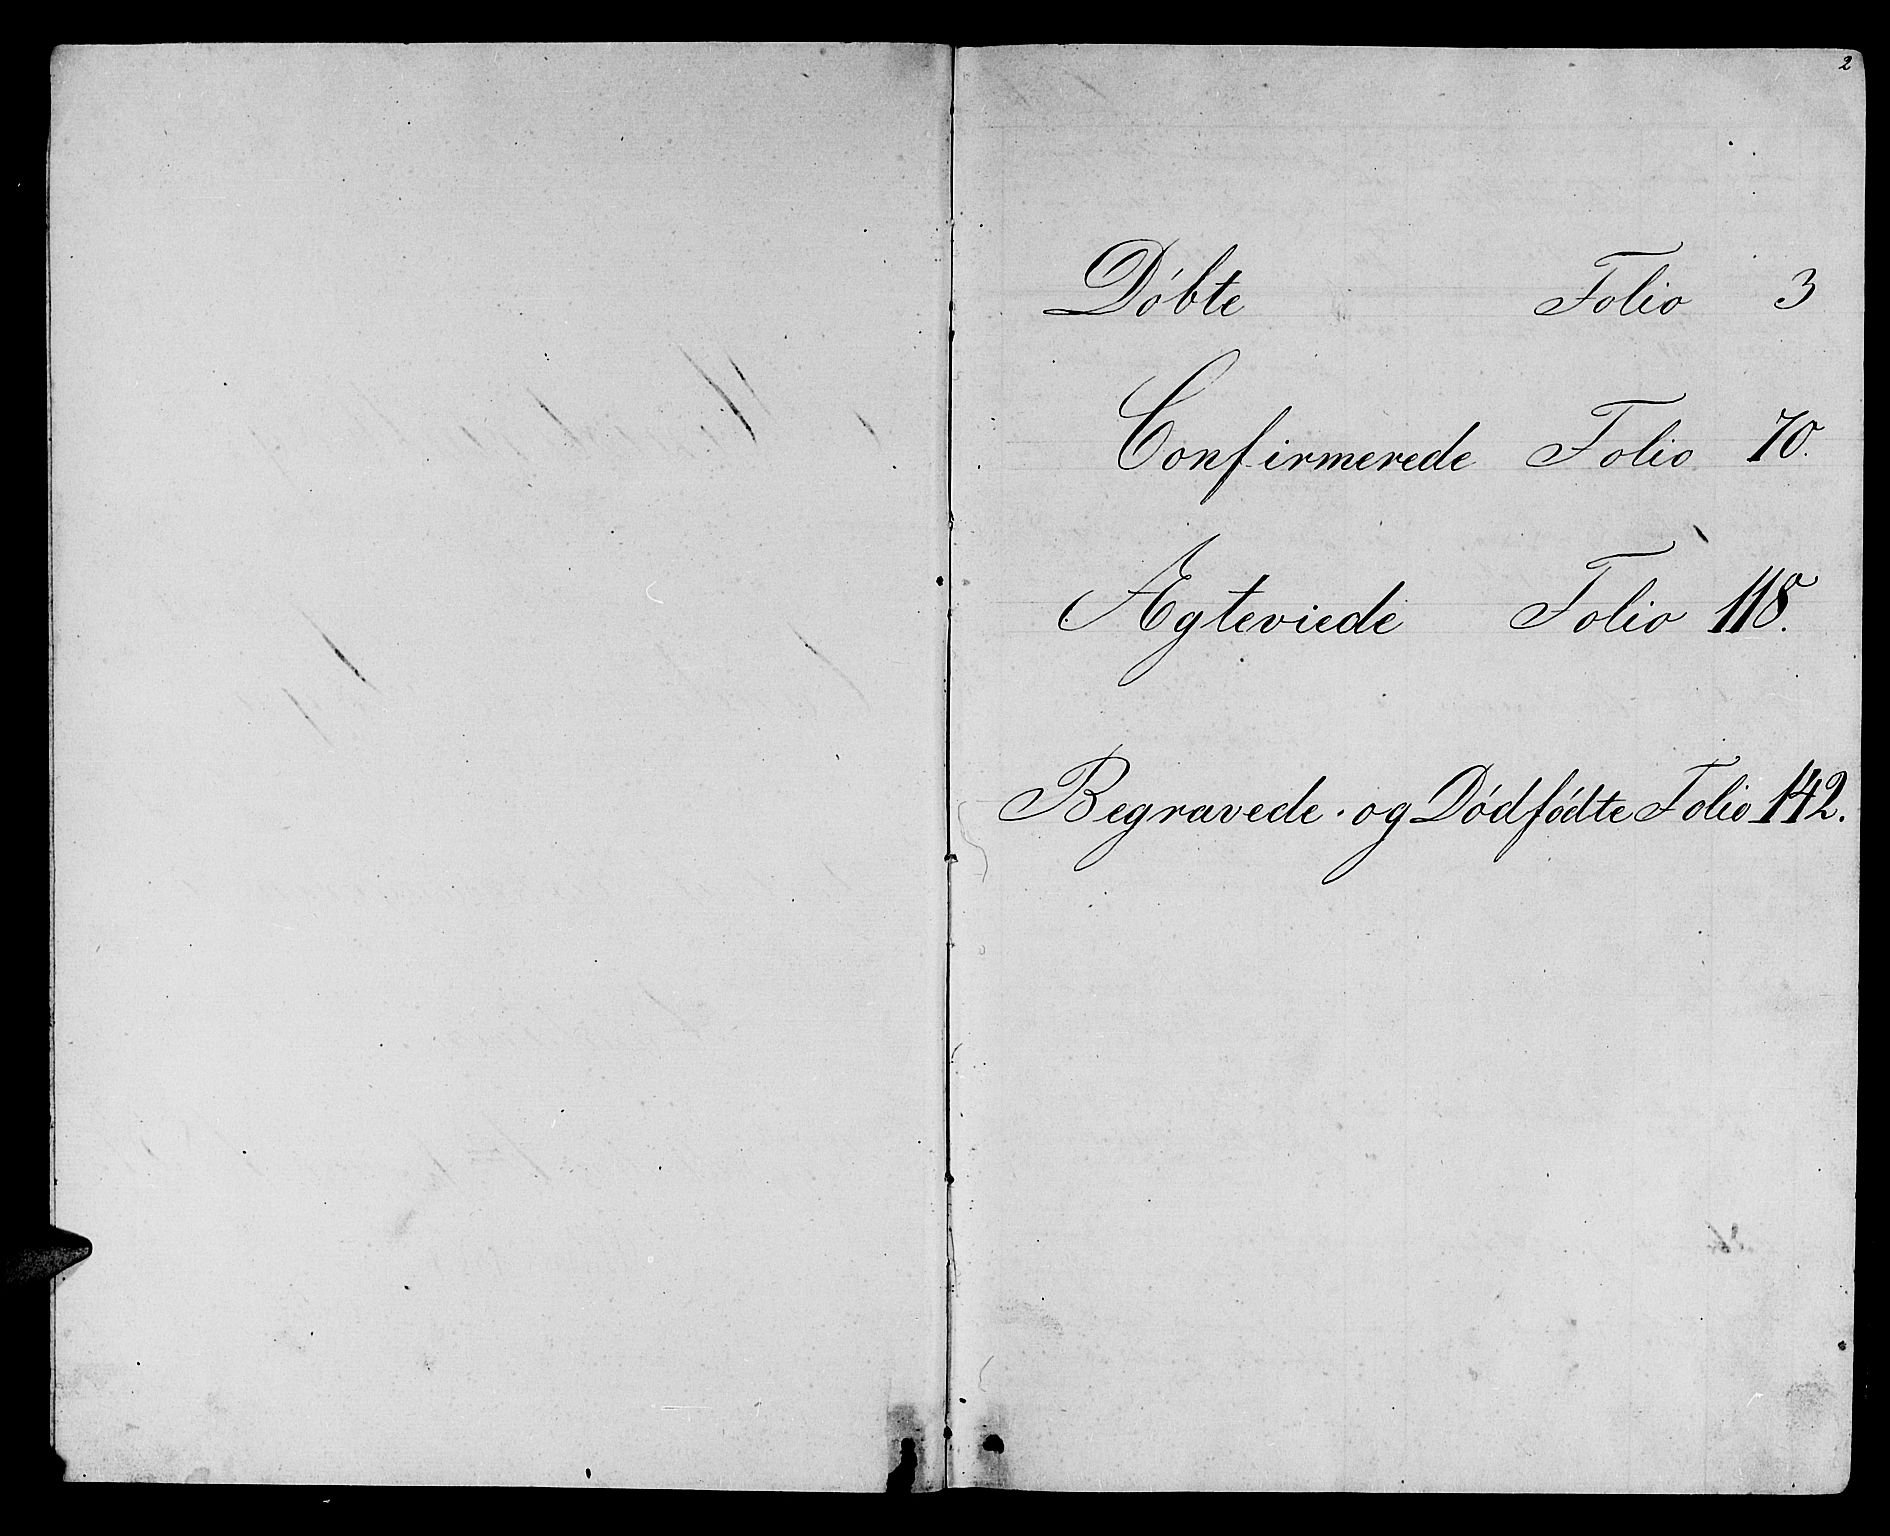 2
Döbte Folio 3
Confirmerede Folio 70.
Ægteviede Folio 118.
Begravede og Dödfödte Folio 142.